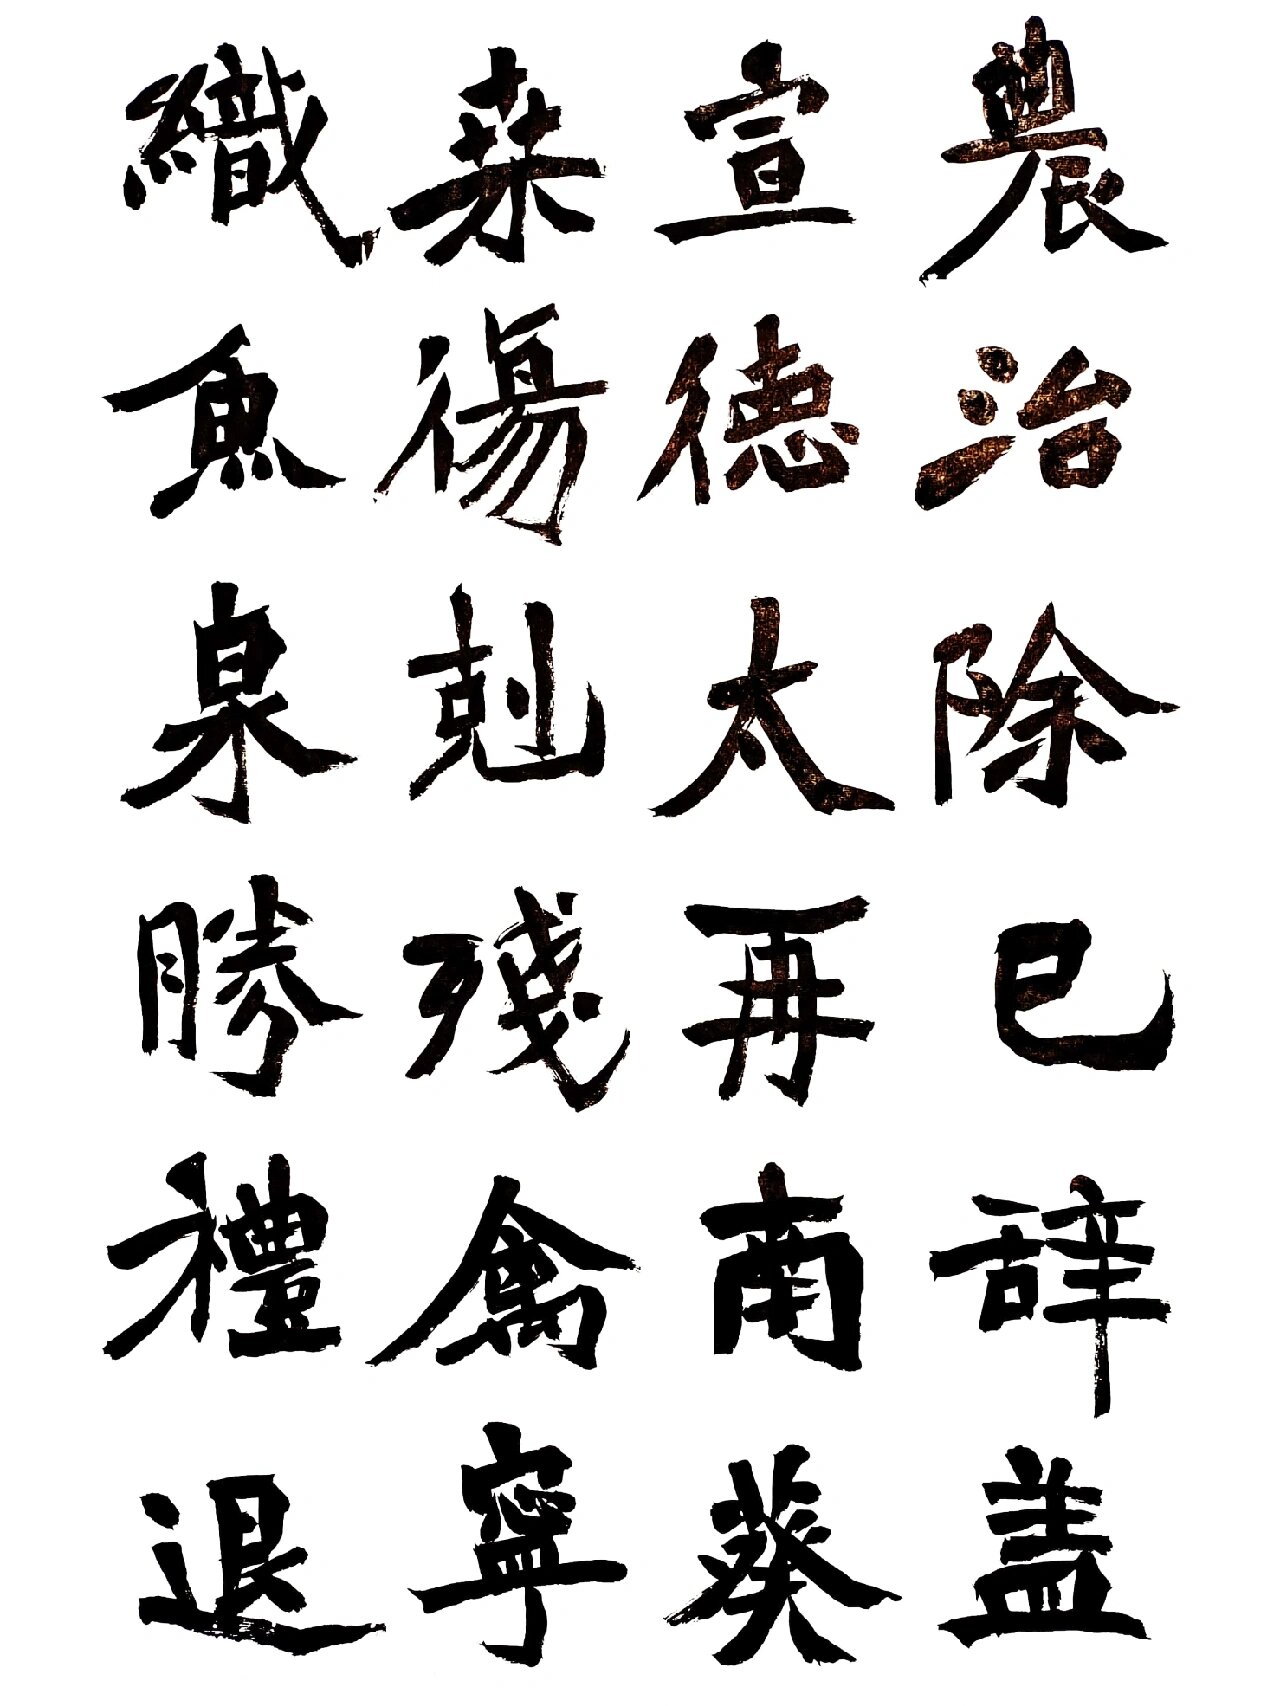 農治除已辞盖
宣德太再南葵
桒傷剋殘禽寧
織魚泉勝禮退